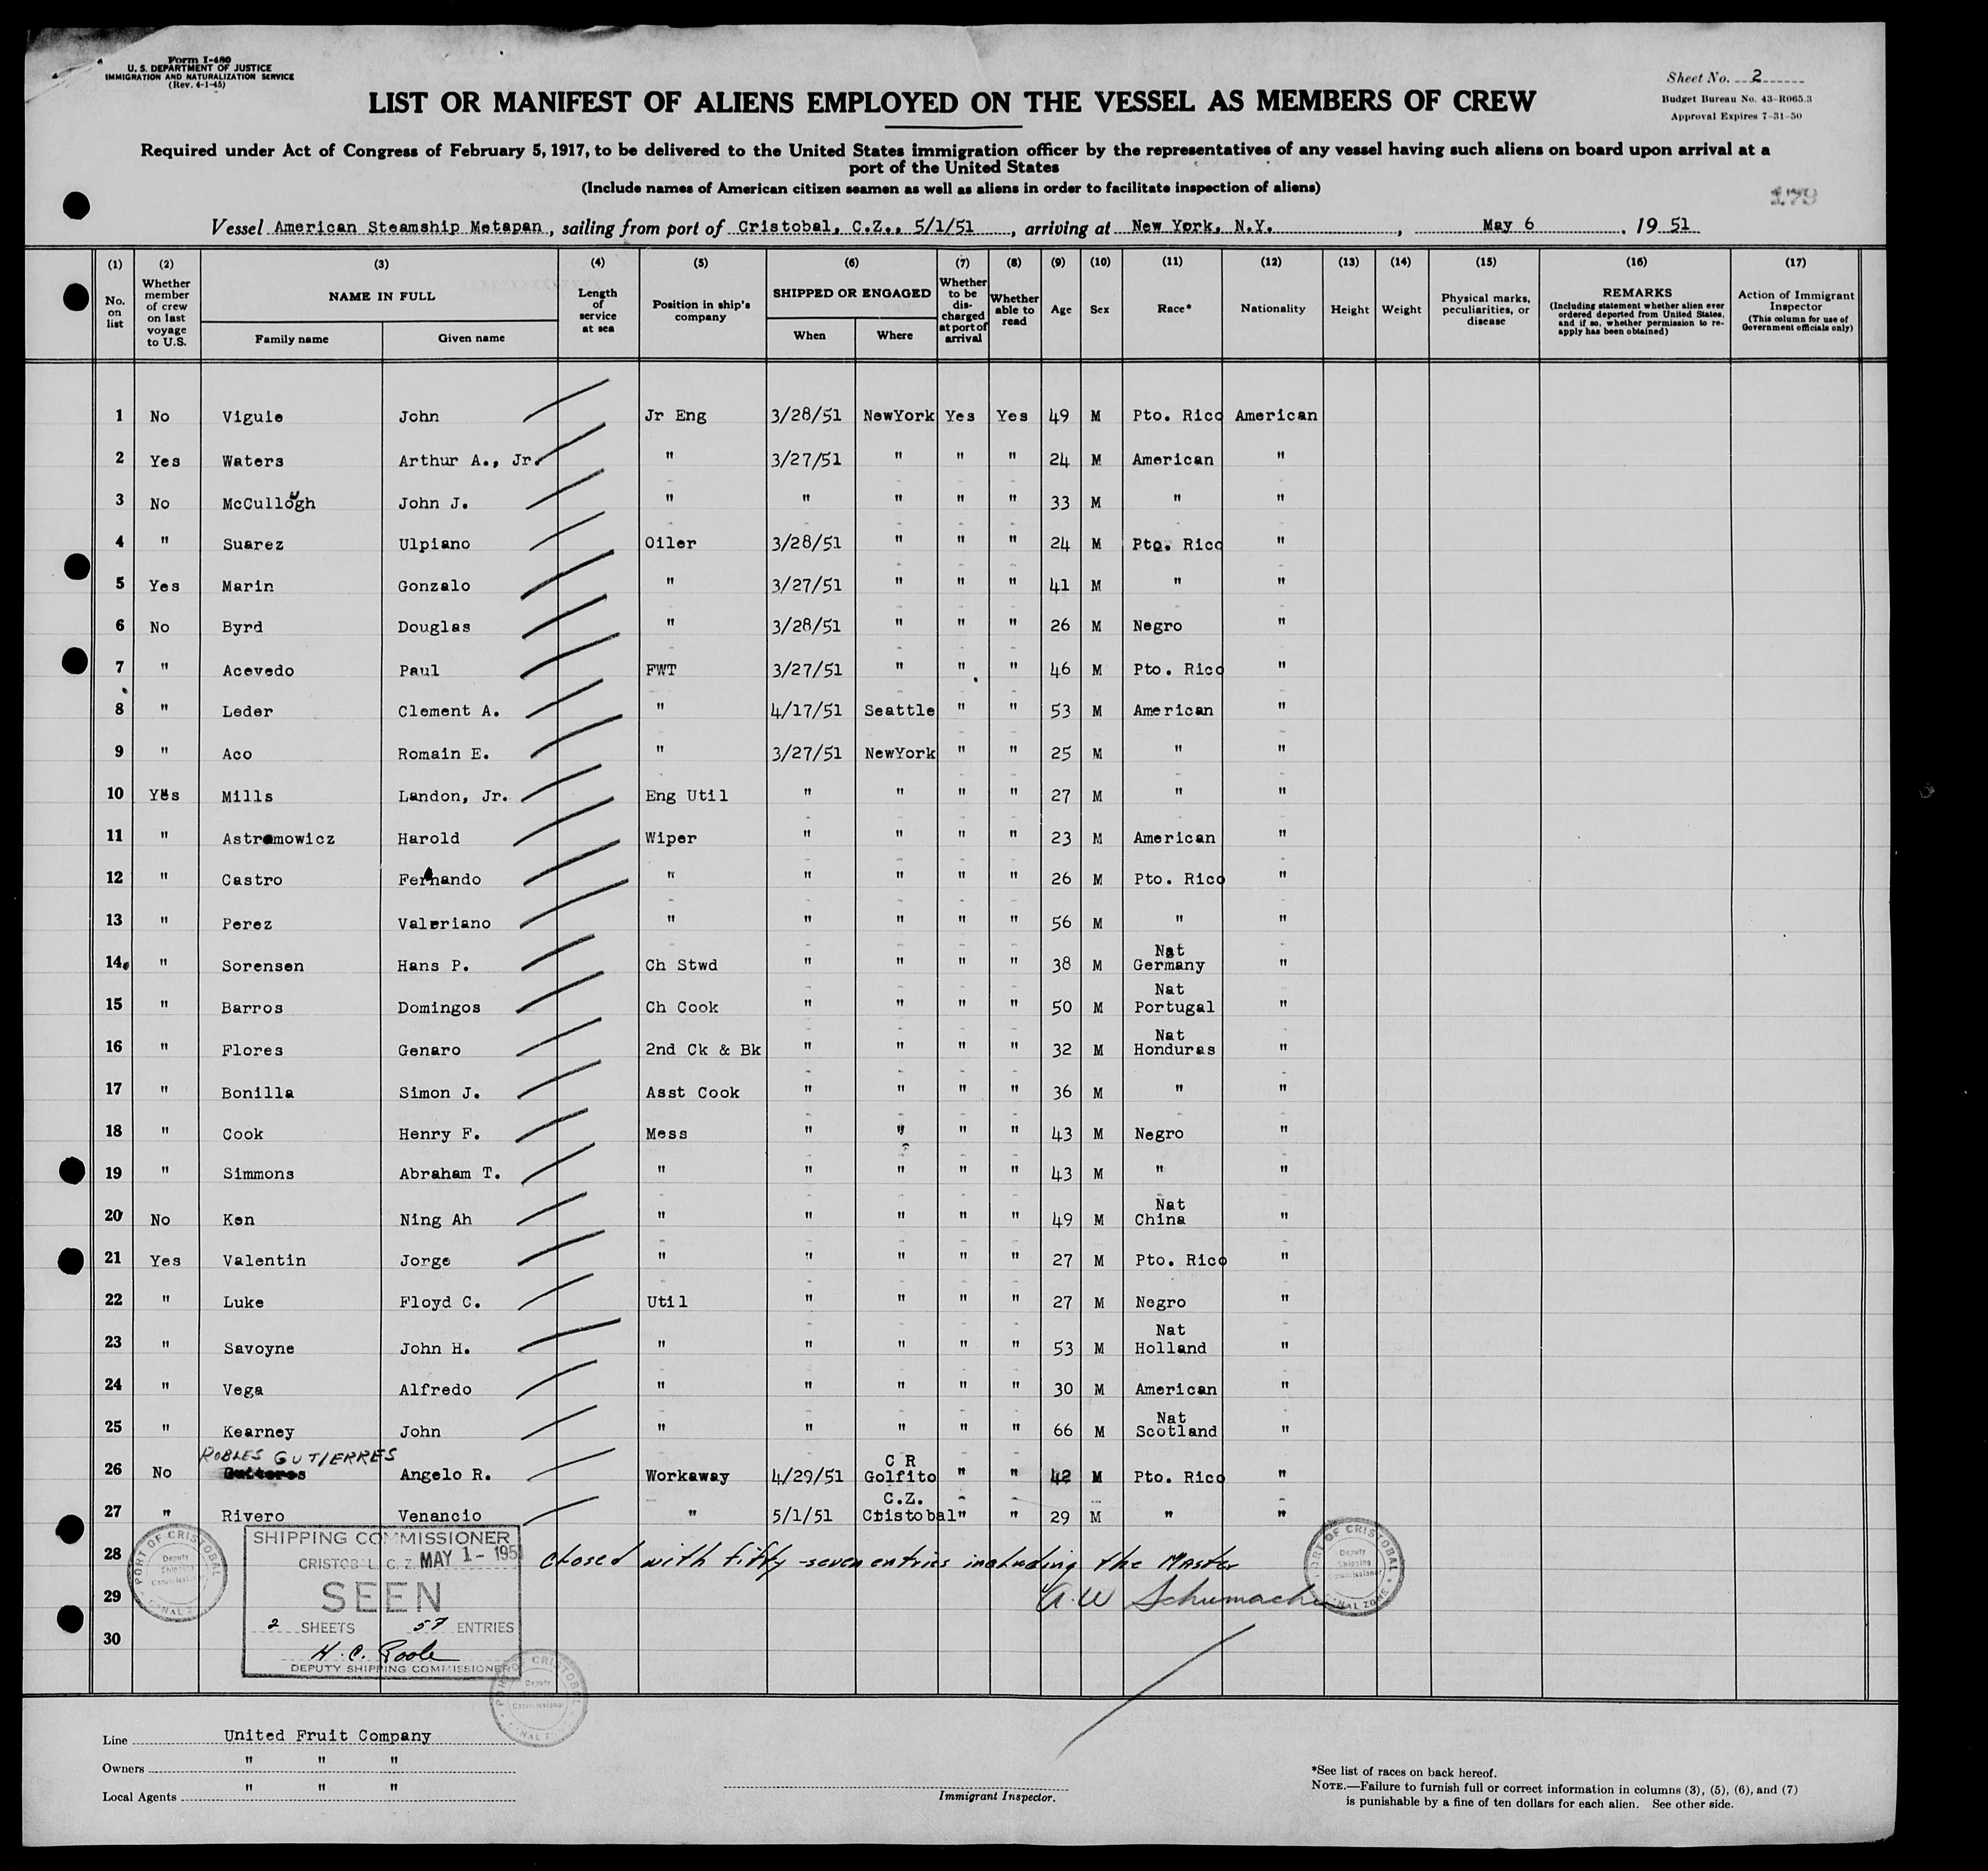 Form I-480
U. S. DEPARTMENT OF JUSTICE
IMMIGRATION AND NATURALIZATION SERVICE
(Rev. 4-1-45)
Sheet No. 2
Budget Bureau No. 43-R065.3
Approval Expires 7-31-50
LIST OR MANIFEST OF ALIENS EMPLOYED ON THE VESSEL AS MEMBERS OF CREW
Required under Act of Congress of February 5, 1917, to be delivered to the United States immigration officer by the representatives of any vessel having such aliens on board upon arrival at a
port of the United States
(Include names of American citizen seamen as well as aliens in order to facilitate inspection of aliens)
179
Vessel American Steamship Metapan, sailing from port of Cristobal, C.Z., 5/1/51, arriving at New York, N.Y., May 6, 19 51
(1) (2) (3) (4) (5) (6) (7) (8) (9) (10) (11) (12) (13) (14) (15) (16) (17)
No. on list
Whether member of crew on last voyage to U.S.
NAME IN FULL
Family name
Given name
Length of service at sea
Position in ship's company
SHIPPED OR ENGAGED
When
Where
Whether to be discharged at port of arrival
Whether able to read
Age
Sex
Race*
Nationality
Height
Weight
Physical marks, peculiarities, or disease
REMARKS
(Including statement whether alien ever ordered deported from United States, and if so, whether permission to re-apply has been obtained)
Action of Immigrant Inspector
(This column for use of Government officials only)
1 No Viguie John Jr Eng 3/28/51 NewYork Yes Yes 49 M Pto. Rico American
2 Yes Waters Arthur A., Jr. " 3/27/51 " " " 24 M American "
3 No McCullough John J. " " " " " 33 M " "
4 " Suarez Ulpiano Oiler 3/28/51 " " " 24 M Pto. Rico "
5 Yes Marin Gonzalo " 3/27/51 " " " 41 M " "
6 No Byrd Douglas " 3/28/51 " " " 26 M Negro "
7 " Acevedo Paul FWT 3/27/51 " " " 46 M Pto. Rico "
8 " Leder Clement A. " 4/17/51 Seattle " " 53 M American "
9 " Aco Romain E. " 3/27/51 NewYork " " 25 M " "
10 Yes Mills Landon, Jr. Eng Util " " " " 27 M " "
11 " Astramowicz Harold Wiper " " " " 23 M American "
12 " Castro Fernando " " " " " 26 M Pto. Rico "
13 " Perez Valeriano " " " " " 56 M " "
14 " Sorensen Hans P. Ch Stwd " " " " 38 M Nat Germany "
15 " Barros Domingos Ch Cook " " " " 50 M Nat Portugal "
16 " Flores Genaro 2nd Ck & Bk " " " " 32 M Nat Honduras "
17 " Bonilla Simon J. Asst Cook " " " " 36 M " "
18 " Cook Henry F. Mess " " " " 43 M Negro "
19 " Simmons Abraham T. " " " " " 43 M " "
20 No Ken Ning Ah " " " " " 49 M Nat China "
21 Yes Valentin Jorge " " " " " 27 M Pto. Rico "
22 " Luke Floyd C. Util " " " " 27 M Negro "
23 " Savoyne John H. " " " " " 53 M Nat Holland "
24 " Vega Alfredo " " " " " 30 M American "
25 " Kearney John " " " " " 66 M Nat Scotland "
ROBLES GUTIERRES
26 No Angelo R. Workaway 4/29/51 C R Golfito " " 42 M Pto. Rico "
27 " Rivero Venancio " 5/1/51 C.Z. Cristobal " " 29 M " "
28 closed with fifty-seven entries including the Master
29 A. W Schumacher
30
SHIPPING COMMISSIONER
CRISTOBAL, C. Z. MAY 1 - 195
SEEN
2 SHEETS 57 ENTRIES
H. C. Poole
DEPUTY SHIPPING COMMISSIONER
PORT OF CRISTOBAL
Deputy Shipping Commissioner
CANAL ZONE
PORT OF CRISTOBAL
Deputy Shipping Commissioner
CANAL ZONE
PORT OF CRISTOBAL
Deputy
Commissioner
CANAL Z
Line United Fruit Company
Owners " " "
Local Agents " " "
Immigrant Inspector.
*See list of races on back hereof.
NOTE.—Failure to furnish full or correct information in columns (3), (5), (6), and (7)
is punishable by a fine of ten dollars for each alien. See other side.